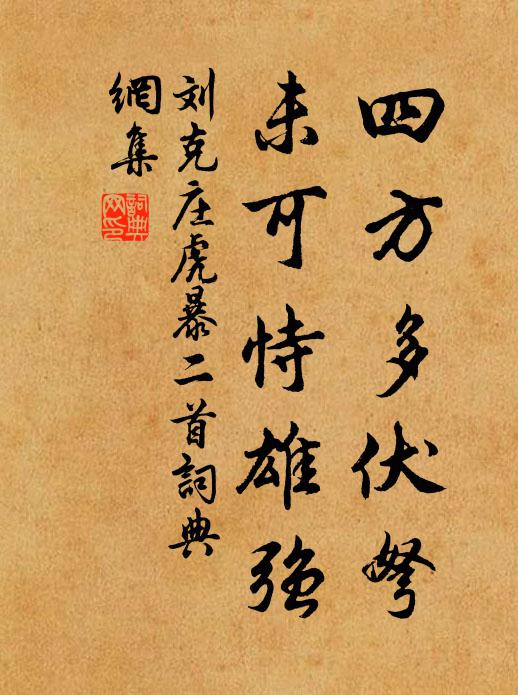 四方多伏弩
未可恃雄强
刘克庄虎暴二首詞典
網集
詞典
网印